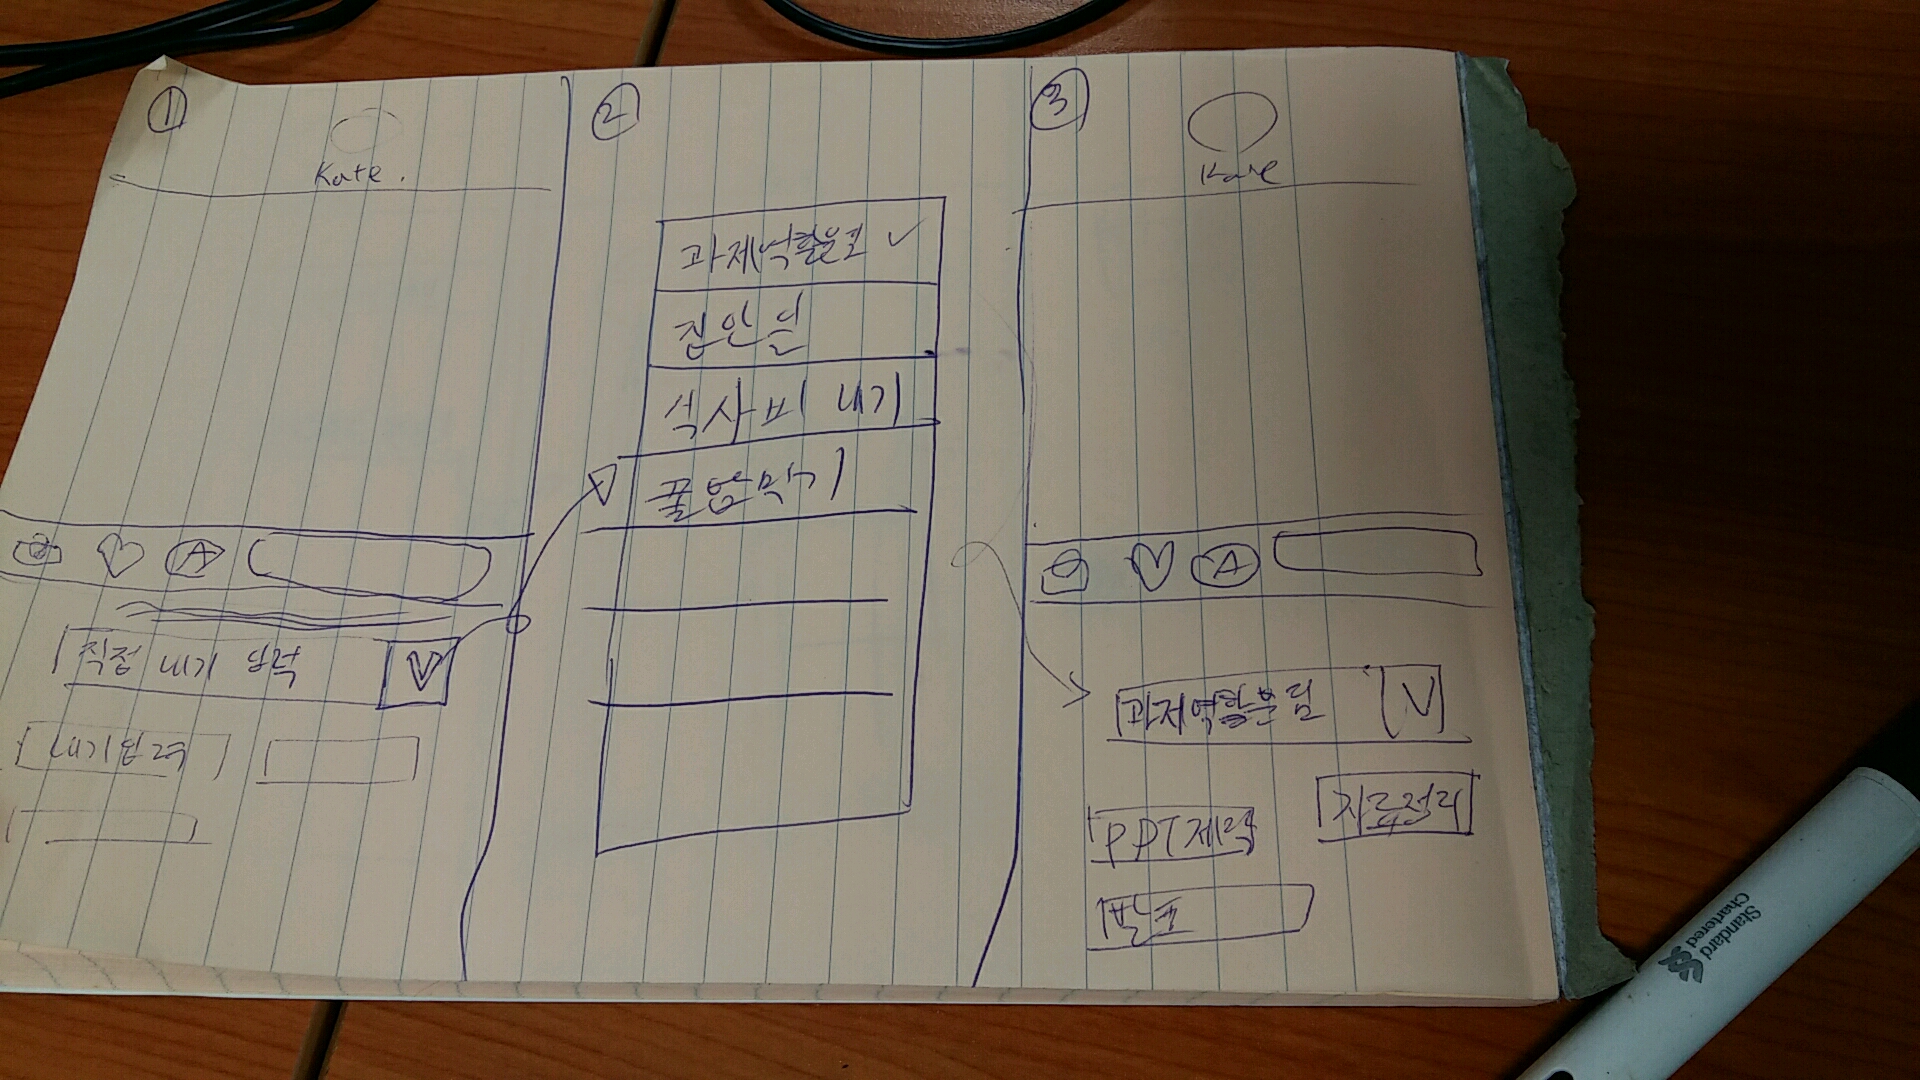 ①
Kate.
A
직접 내기 입력
V
내기 입력
②
과제역할분담 ✓
집안일
식사비 내기
꿀밤맞기
③
Kate
A
과제역할분담
V
PPT제작
자료정리
발표
Standard
Chartered